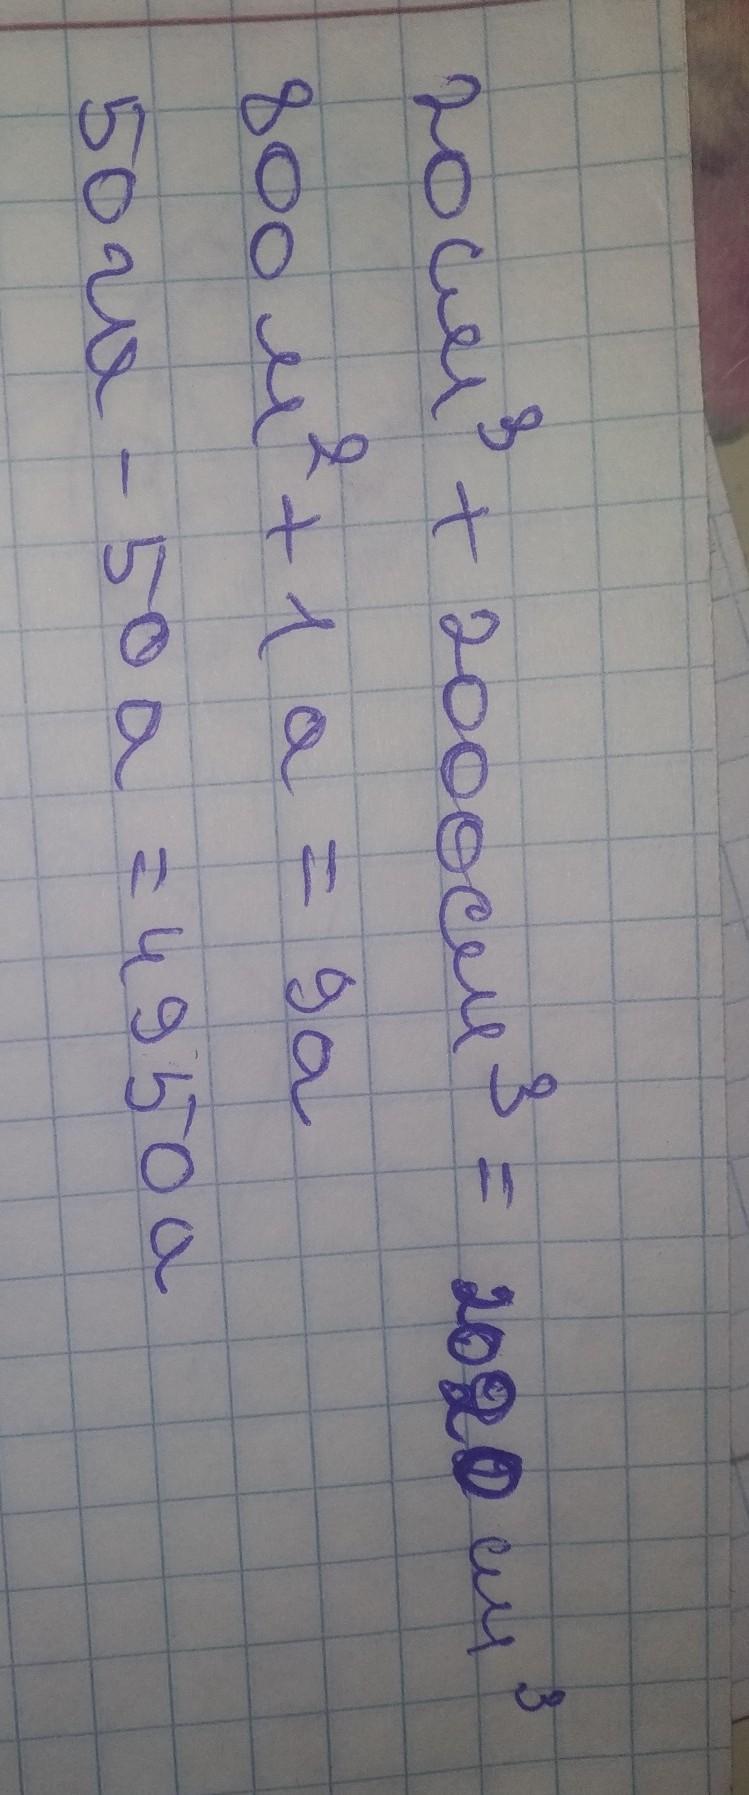 20см³ + 2000см³ = 2020 см³
800 м² + 1 а = 9а
50 га - 50 а = 4950а